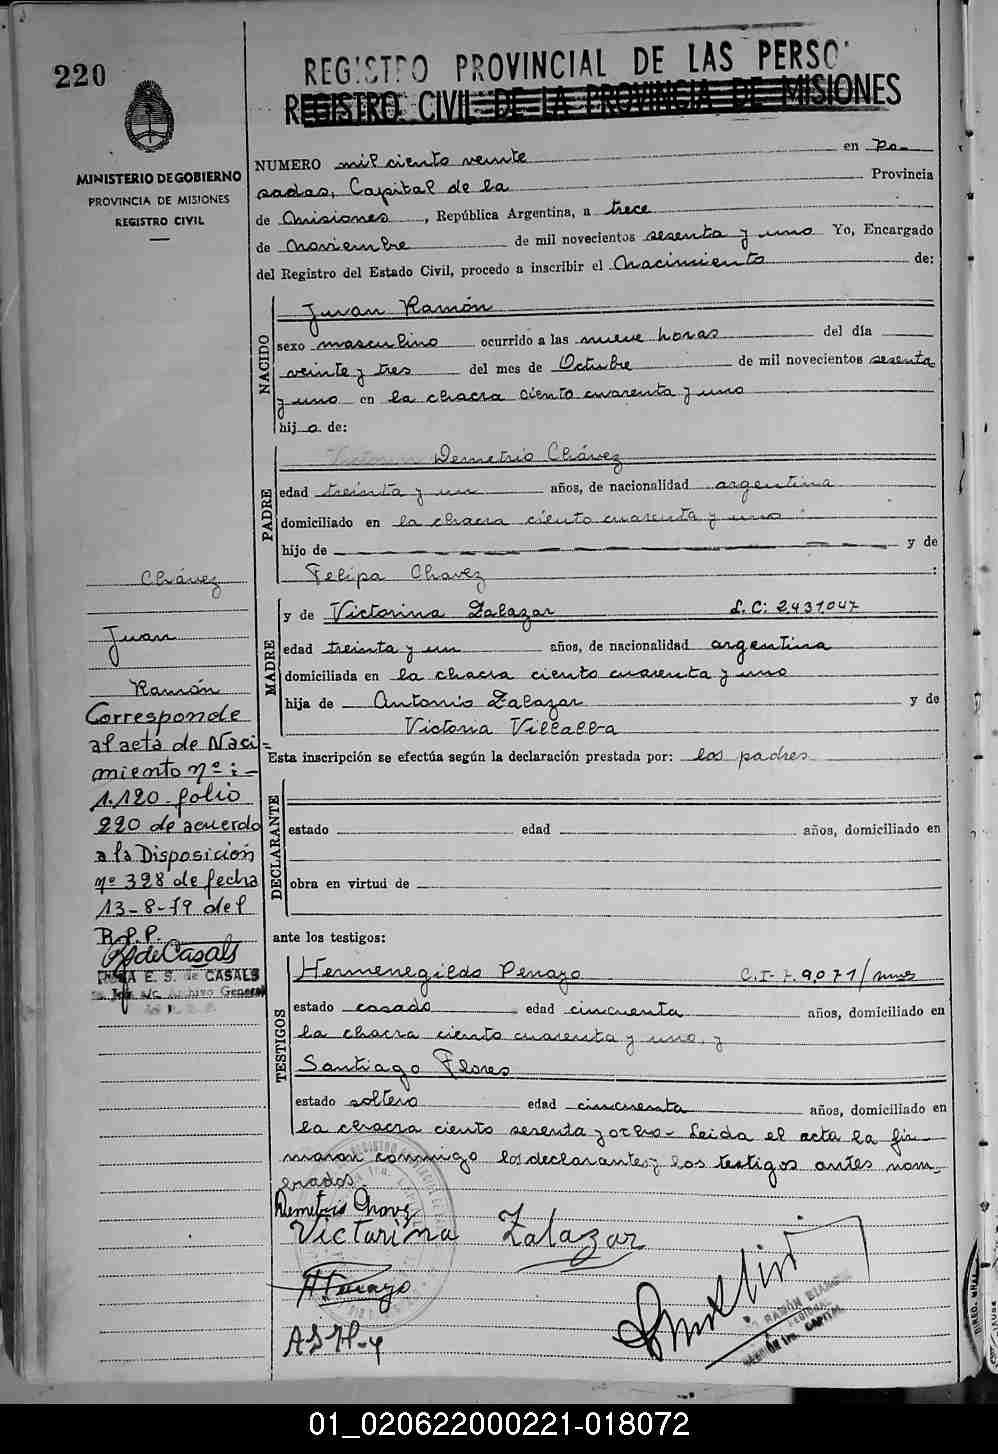 220
REGISTRO PROVINCIAL DE LAS PERSO
REGISTRO CIVIL DE LA PROVINCIA DE MISIONES
MINISTERIO DE GOBIERNO
PROVINCIA DE MISIONES
REGISTRO CIVIL
NUMERO mil ciento veinte en Po-
sadas, Capital de la Provincia
de Misiones, República Argentina, a trece
de Noviembre de mil novecientos sesenta y uno Yo, Encargado
del Registro del Estado Civil, procedo a inscribir el Nacimiento de:
NACIDO
Juan Ramón
sexo masculino ocurrido a las nueve horas del día
veinte y tres del mes de Octubre de mil novecientos sesenta
y uno en la chacra ciento cuarenta y uno
hijo de:
PADRE
Demetrio Chávez
edad treinta y un años, de nacionalidad argentina
domiciliado en la chacra ciento cuarenta y uno
hijo de y de
Felipa Chavez
MADRE
y de Victorina Zalazar L.C: 2.431.047
edad treinta y un años, de nacionalidad argentina
domiciliada en la chacra ciento cuarenta y uno
hija de Antonio Zalazar y de
Victoria Villalba
Esta inscripción se efectúa según la declaración prestada por: los padres
DECLARANTE
estado edad años, domiciliado en
obra en virtud de
ante los testigos:
TESTIGOS
Hermenegildo Penayo C.I. 79.071/mnes
estado casado edad cincuenta años, domiciliado en
la chacra ciento cuarenta y uno, y
Santiago Flores
estado soltero edad cincuenta años, domiciliado en
la chacra ciento sesenta y ocho- Leida el acta la fir-
maron conmigo los declarantes y los testigos antes nom-
brados.
Demetrio Chavez
Victarina Zalazar
Chávez
Juan
Ramón
Corresponde
al acta de Naci-
miento nº:-
1.120 folio
220 de acuerdo
a la Disposición
nº 328 de fecha
13-8-79 del
R.P.P.
de Casals
E. S. de CASALS
Jefe a/c. Archivo General
01_020622000221-018072